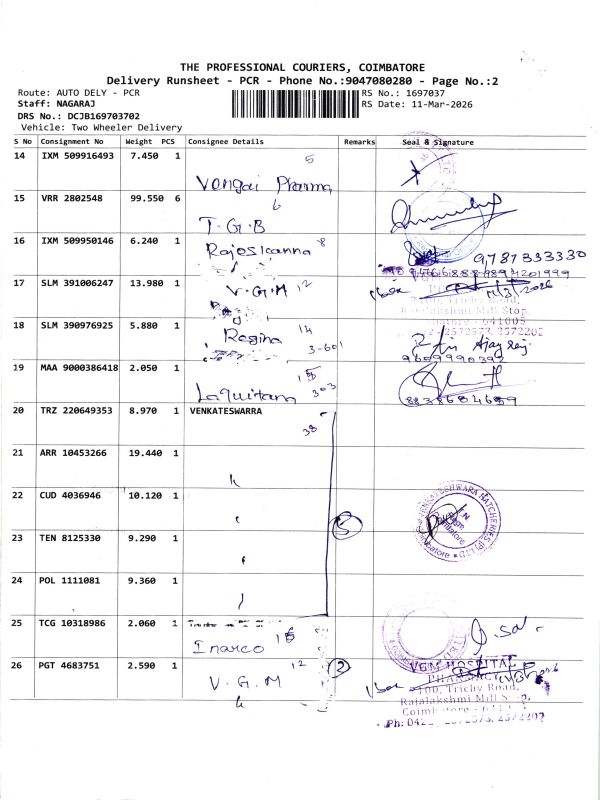 THE PROFESSIONAL COURIERS, COIMBATORE
Delivery Runsheet - PCR - Phone No.:9047080280 - Page No.:2
Route: AUTO DELY - PCR
RS No.: 1697037
Staff: NAGARAJ
RS Date: 11-Mar-2026
DRS No.: DCJB169703702
Vehicle: Two Wheeler Delivery
S No Consignment No Weight PCS Consignee Details Remarks Seal & Signature
14 IXM 509916493 7.450 1
5
Vengai Pharma
15 VRR 2802548 99.550 6
6
T.G.B
16 IXM 509950146 6.240 1
Rajeskanna 8
9787833330
17 SLM 391006247 13.980 1
V.G.M 12
Trichy Road,
Rajalakshmi Mill Stop,
18 SLM 390976925 5.880 1
Regina 14
3-601
9609990392
19 MAA 9000386418 2.050 1
15
303
8838684659
20 TRZ 220649353 8.970 1 VENKATESWARRA
38
21 ARR 10453266 19.440 1
22 CUD 4036946 10.120 1
VENKATESHWARA HATCHERIES (P) LTD
Coimbatore
5
23 TEN 8125330 9.290 1
24 POL 1111081 9.360 1
25 TCG 10318986 2.060 1
Inarco 16
26 PGT 4683751 2.590 1
V.G.M 12
2
VGM HOSPITAL
PHARMACY
2100, Trichy Road,
Rajalakshmi Mill Stop,